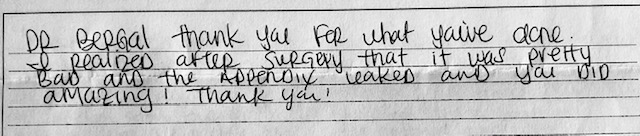 DR BERGAL thank you FOR what you've done.
I Realized after surgery that it was pretty
Bad and the Appendix leaked and you DID
amazing! Thank you!